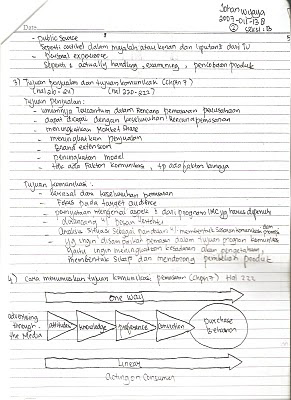 Johan Wijaya
2007-011-138
Sesi: B
- Public Source
Seperti artikel dalam majalah atau koran dan liputan dari TV
- Personal experience
Seperti: actually handling, examining, percobaan produk
3) Tujuan penjualan dan tujuan komunikasi (Chptr 7)
Tujuan Penjualan:
- umumnya tercantum dalam Rencana pemasaran perusahaan
- dapat dicapai dengan keseluruhan Rencana pemasaran
- meningkatkan Market Share
- meningkatkan penjualan
- Brand extension
- peningkatan model
- tdk ada faktor komunikasi, tp ada faktor lainnya
Tujuan Komunikasi:
- berasal dari keseluruhan pemasaran
- Fokus pada target audience
- pernyataan mengenai aspek2 dari program IMC yg harus dipenuhi
- dirancang w/ pesan tertentu
- Analisa Situasi sebagai panduan w/ membentuk sasaran komunikasi dan promosi
- yg ingin disampaikan pemasar dalam tujuan program komunikasi
yaitu ingin meningkatkan kesadaran dan pengetahuan,
membentuk sikap dan mendorong pembelian produk
4) Cara merumuskan tujuan komunikasi pemasaran (Chptr 7) Hal 222
One Way
advertising through the Media
attitudes
Knowledge
preference
Conviction
Purchase Behavior
Linear
Acting on Consumer